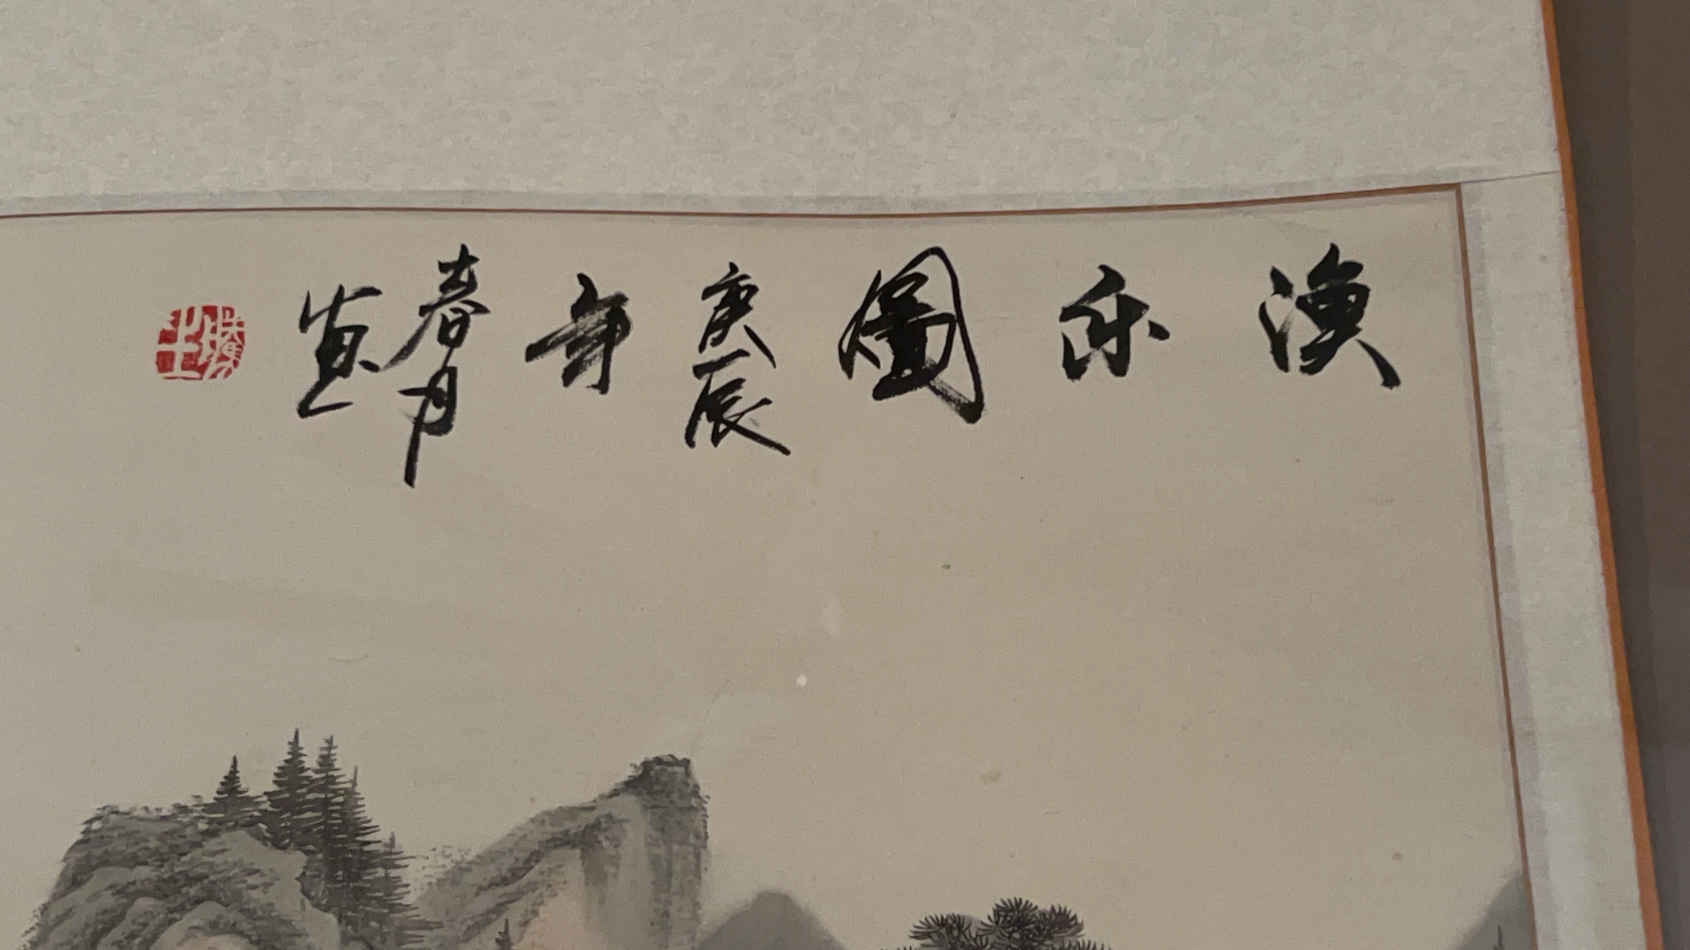 渔乐圖庚辰年春月